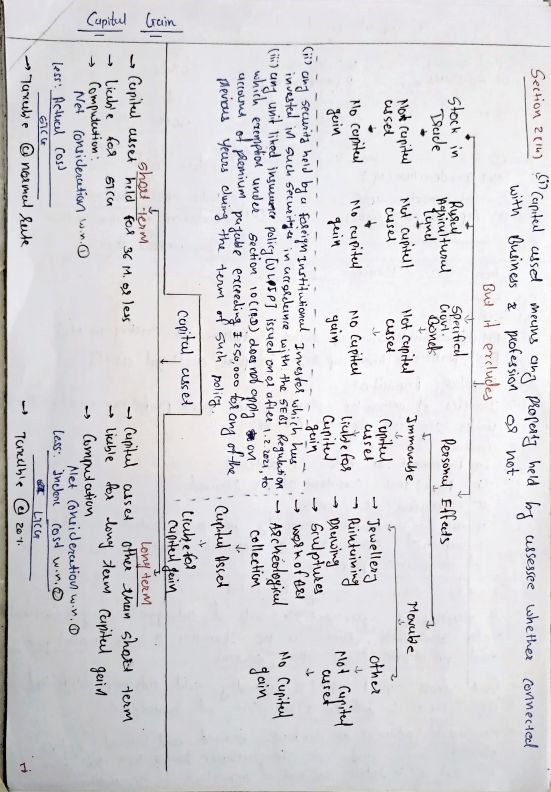 Capital Gain
Section 2(14)
(i) Capital asset means any Property held by assessee whether connected
with Business & profession or not.
But it excludes
Stock in
Trade
Not capital
asset
No capital
gain
Rural
Agricultural
Land
Not capital
asset
No capital
gain
Specified
Govt.
Bonds
Not capital
asset
No capital
gain
Personal Effects
Immovable
Capital
asset
Liable for
Capital
gain
Movable
→ Jewellery
→ Paintaining
→ Drawing
→ Sculptures
→ Work of Art
→ Archeological
collection
Capital Asset
Liable for
Capital gain
Other
Not Capital
asset
No Capital
gain
(ii) any security held by a foreign Institutional Investor which has
invested in such securities in accordance with the SEBI Regulation
(iii) any unit liked insurance policy [ULIP] issued on or after 1.2.2021 to
which exemption under section 10(10D) does not apply on
account of premium payable exceeding ₹ 250,000 for any of the
previous years during the term of such policy.
Capital asset
Short term
→ Capital asset held for 36 M or less
→ Liable for STCG
→ Computation:
Net Consideration w.n. ①
Less: Actual Cost
STCG
→ Taxable @ normal Rate
Long term
→ Capital asset other than short term
→ Liable for long term Capital gain
→ Computation
Net Consideration w.n. ①
Less: Index Cost w.n. ②
LTCG
→ Taxable @ 20%
1